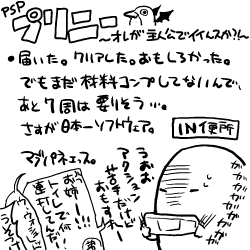 PSP
プリニー
～オレが主人公でイイんスか?!～
・届いた。クリアした。おもしろかった。
でもまだ材料コンプしてないんで、
あと7周は要りそう…。
さすが日本一ソフトウェア。
IN便所
マジパネエっス。
うおお
アクション
苦手だけど
おもすれー
ガガガガガガ
お姉ー!!
トイレで何
連打してんだ!